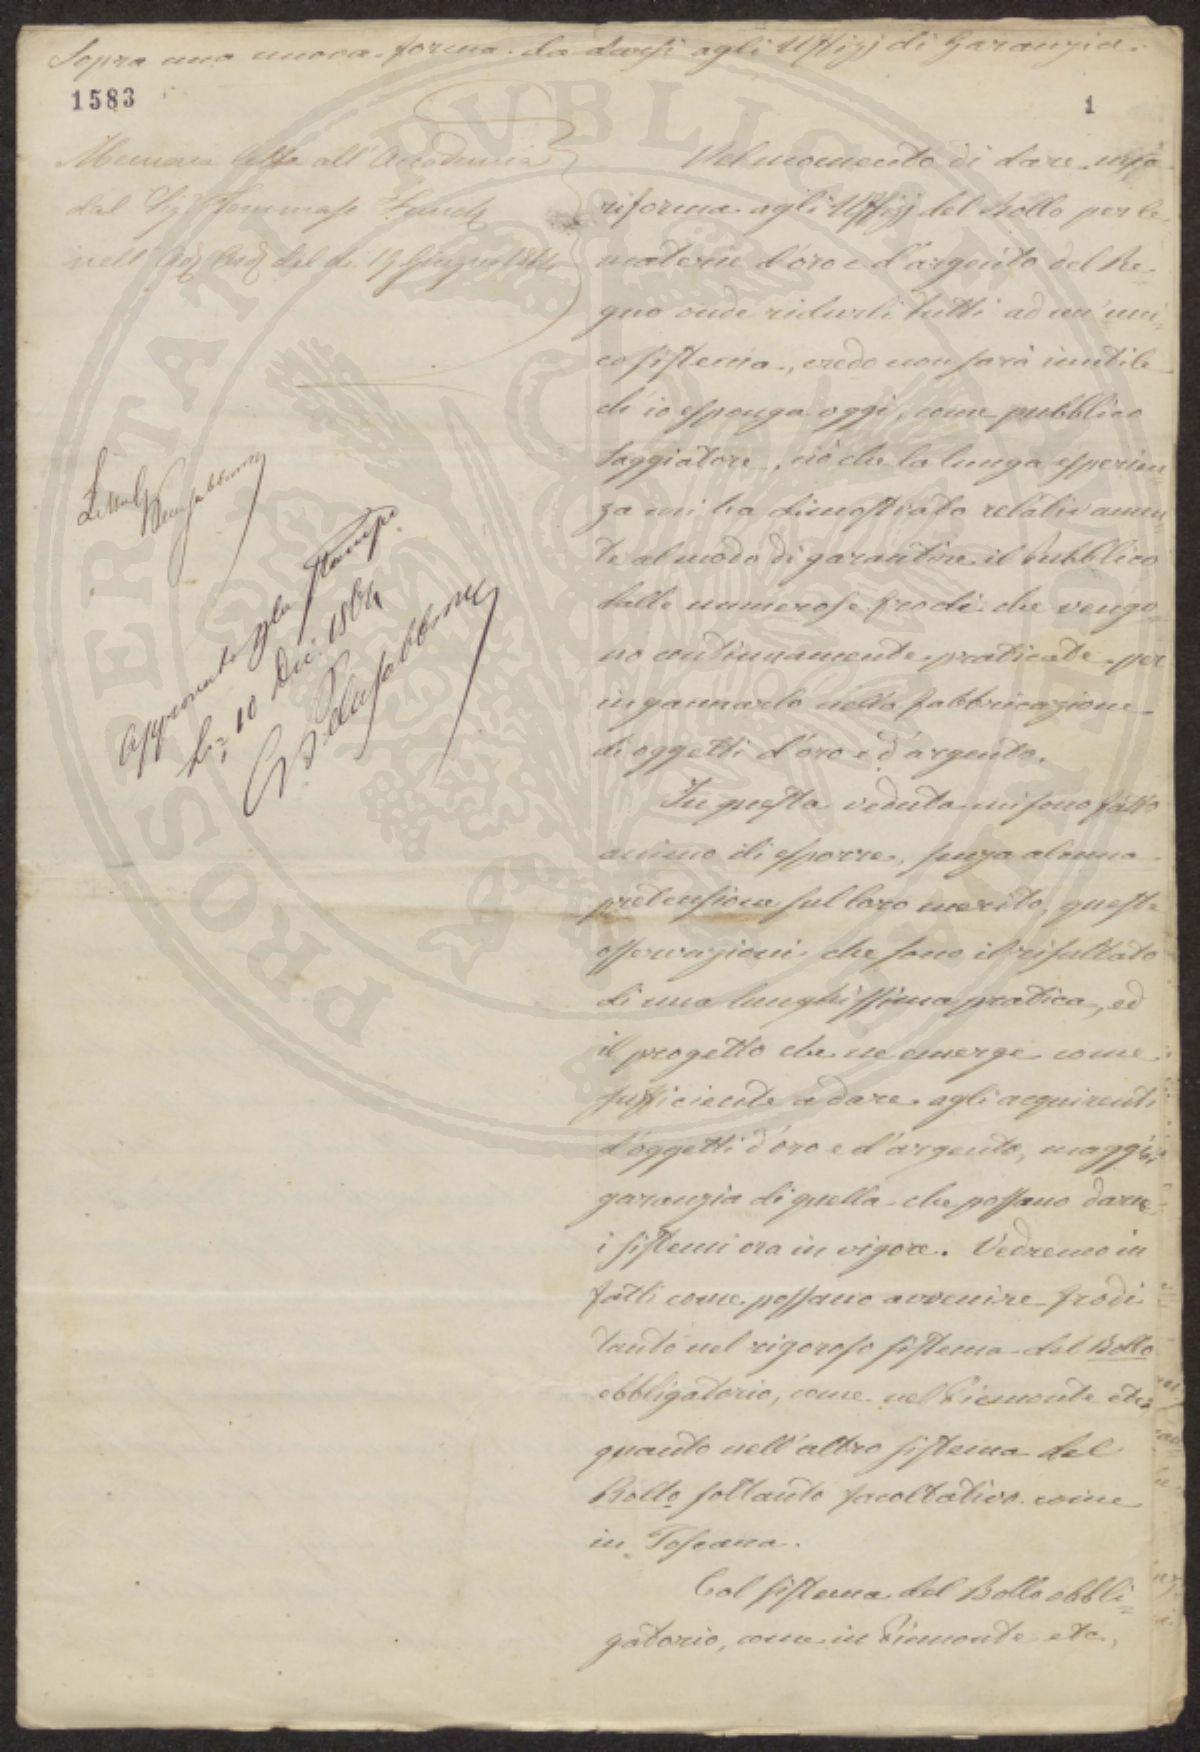 Sopra una nuova forma da darsi agli Uffizj di Garanzia.
1583
1
Memoria letta all' Accademia
dal Sig. Tommaso
nell' Ad. Ord. del dì 19 Giugno 1864
Nel momento di dare una
riforma agli Uffizj del Bollo per le
materie d'oro e d'argento del Re-
gno onde ridurli tutti ad un' uni-
co sistema, credo non sarà inutile
ch' io esponga oggi, come pubblico
Saggiatore, ciò che la lunga esperien
za mi ha dimostrato relativamen
te al modo di garantire il Pubblico
dalle numerose frodi che vengo-
no continuamente praticate per
ingannarlo nella fabbricazione
di oggetti d'oro e d'argento.
In questa veduta mi sono fatto
animo di esporre, senza alcuna
pretensione sul loro merito, queste
osservazioni che sono il risultato
di una lunghissima pratica, ed
il progetto che ne emerge come
sufficiente a dare agli acquirenti
d'oggetti d'oro e d'argento, maggior
garanzia di quella che possano darne
i sistemi ora in vigore. Vedremo in
fatti come possano avvenire frodi
tanto nel rigoroso sistema del Bollo
obbligatorio, come nel Piemonte etc.
quanto nell'altro sistema del
Bollo soltanto facoltativo come
in Toscana.
Col sistema del Bollo obbli=
gatorio, come in Piemonte etc,
Approvata per la stampa
li 10 Dic. 1864